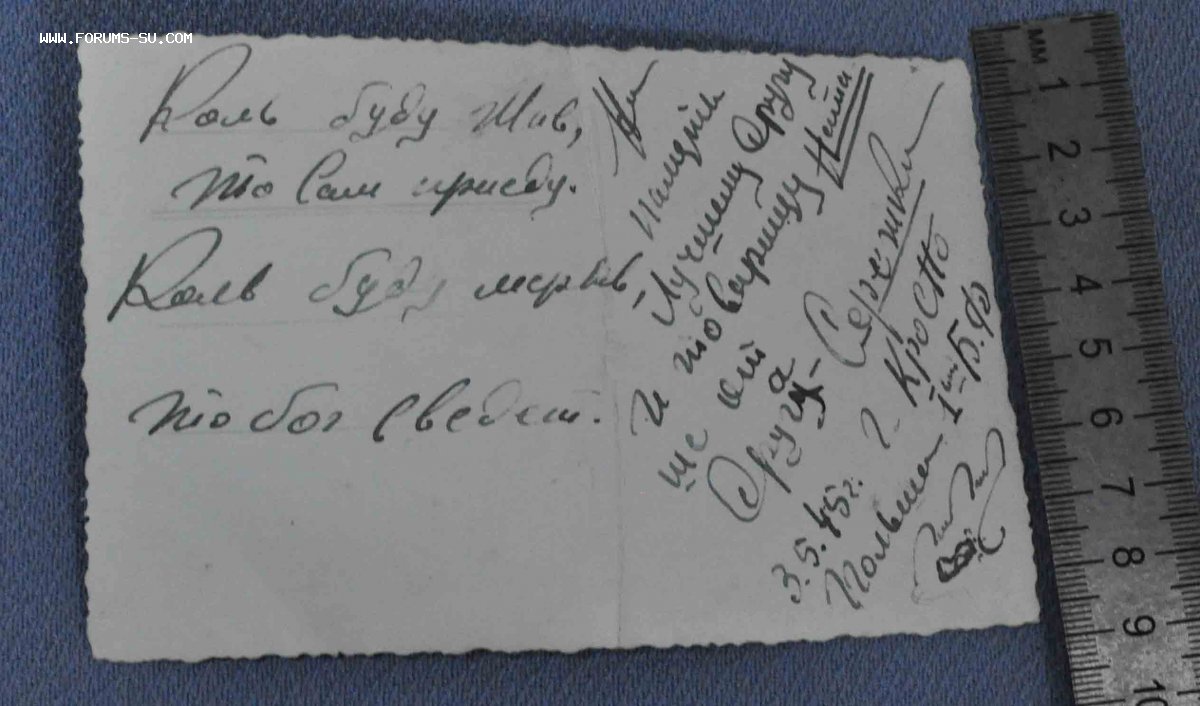 WWW.FORUMS-SU.COM
Коль буду Жив,
то Сам приеду.
Коль буду мертв,
то бог Сведет.
На Память
Лучшему Другу
и товарищу
ше от
Друга - Сережки
3.5.45г. г. Кростно
Польша I Б.Ф
мм
1
2
3
4
5
6
7
8
9
10